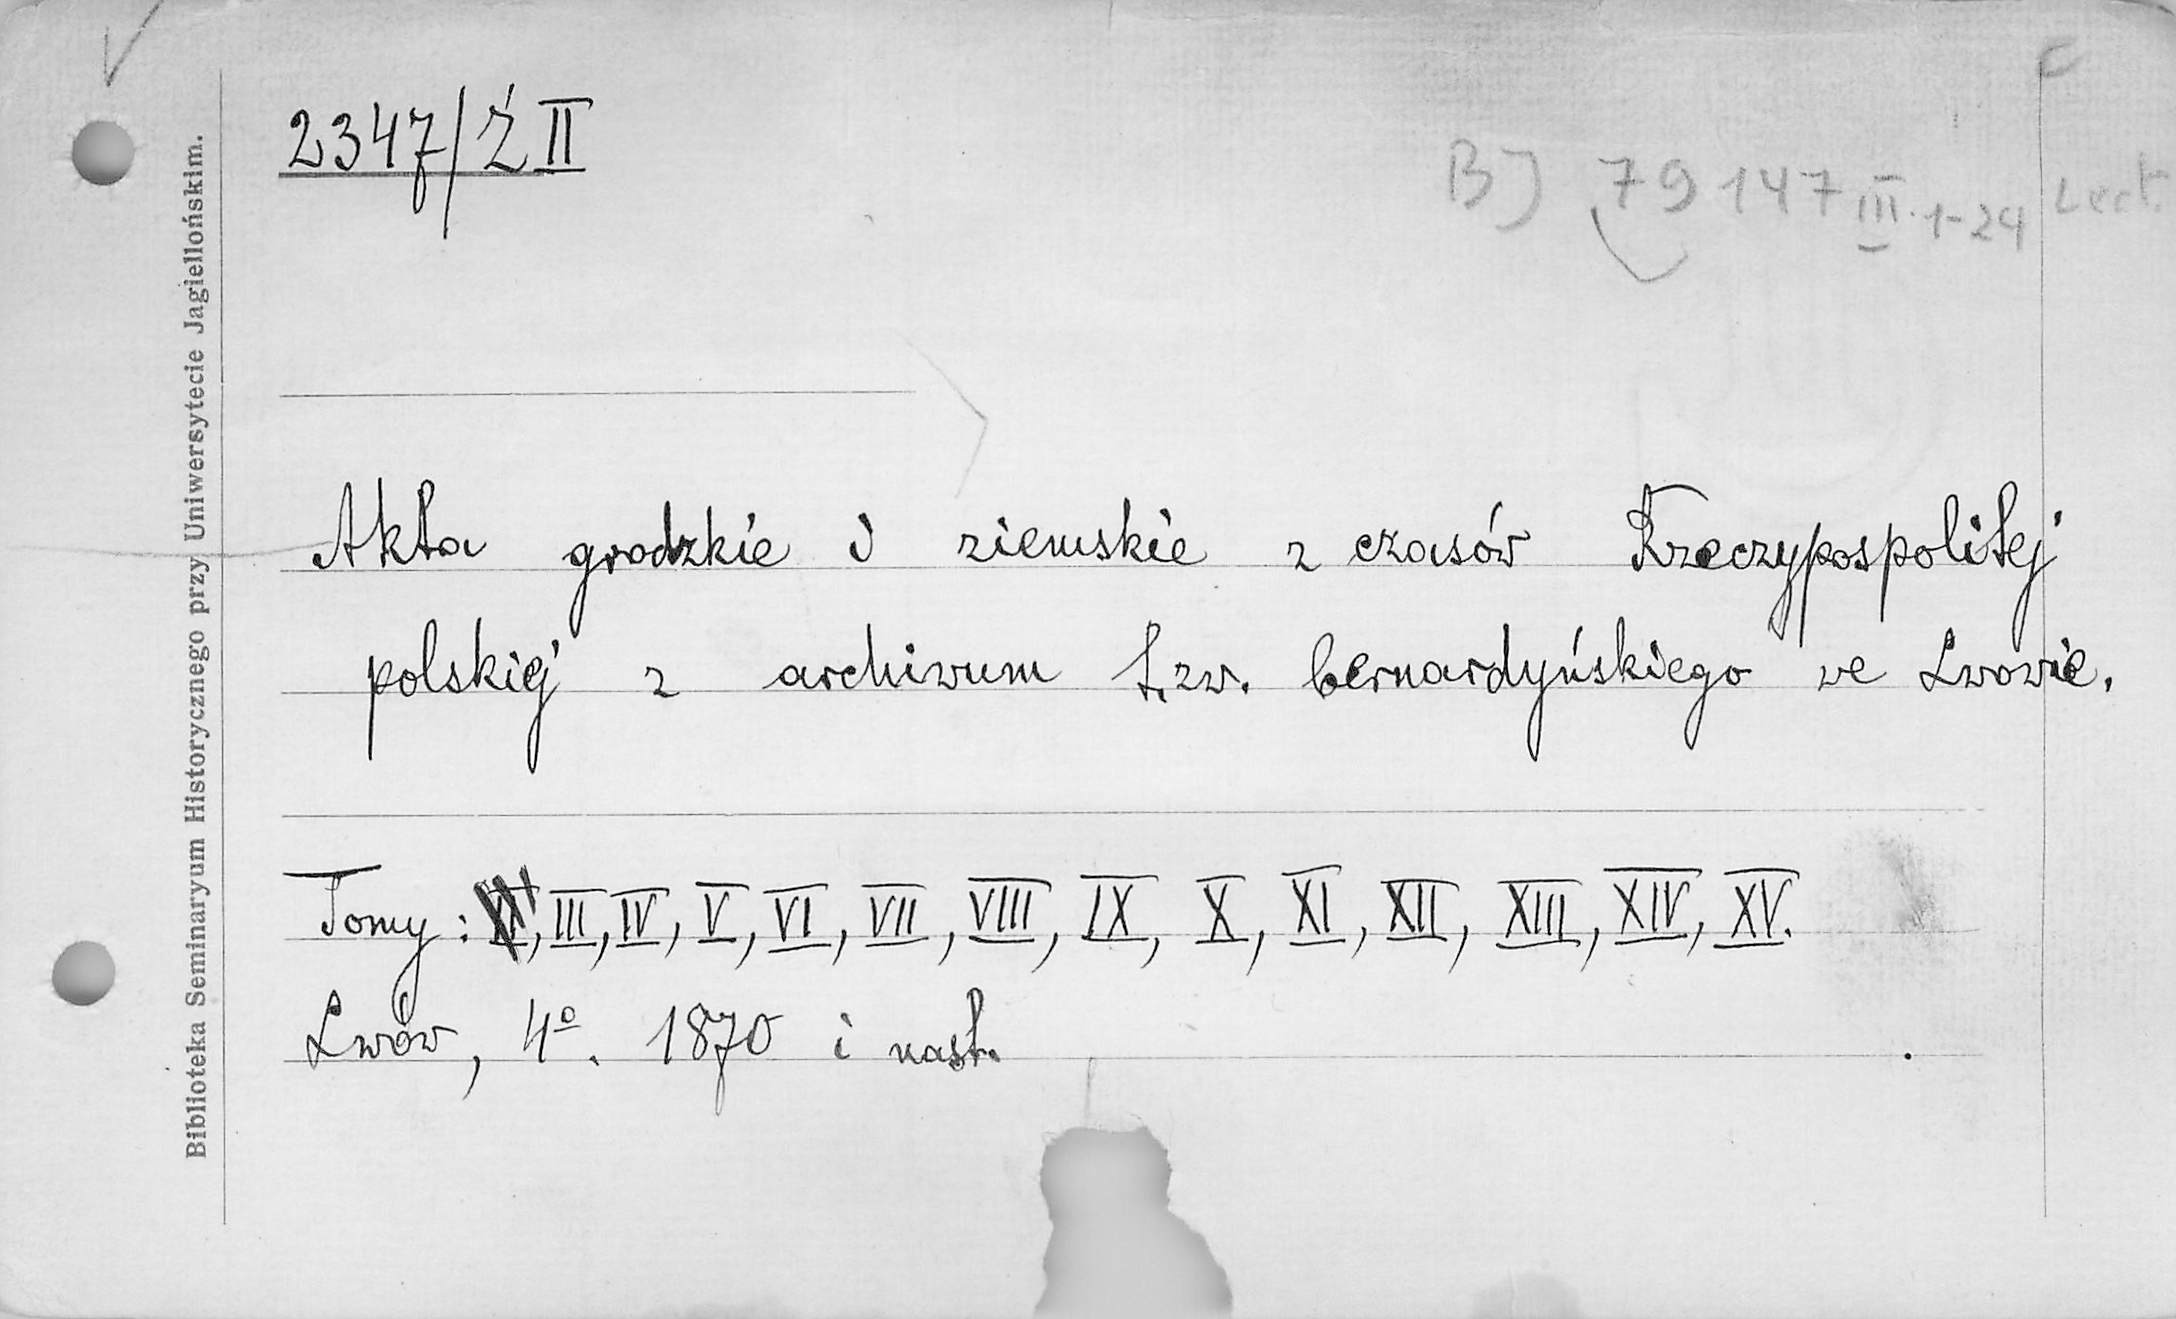 2347/Ż II
BJ 79147 III. 1-24 Lect.
Akta grodzkie i ziemskie z czasów Rzeczypospolitej
polskiej z archiwum t.zw. bernardyńskiego we Lwowie.
Tomy: III, IV, V, VI, VII, VIII, IX, X, XI, XII, XIII, XIV, XV.
Lwów, 4º. 1870 i nast.
Biblioteka Seminaryum Historycznego przy Uniwersytecie Jagiellońskim.